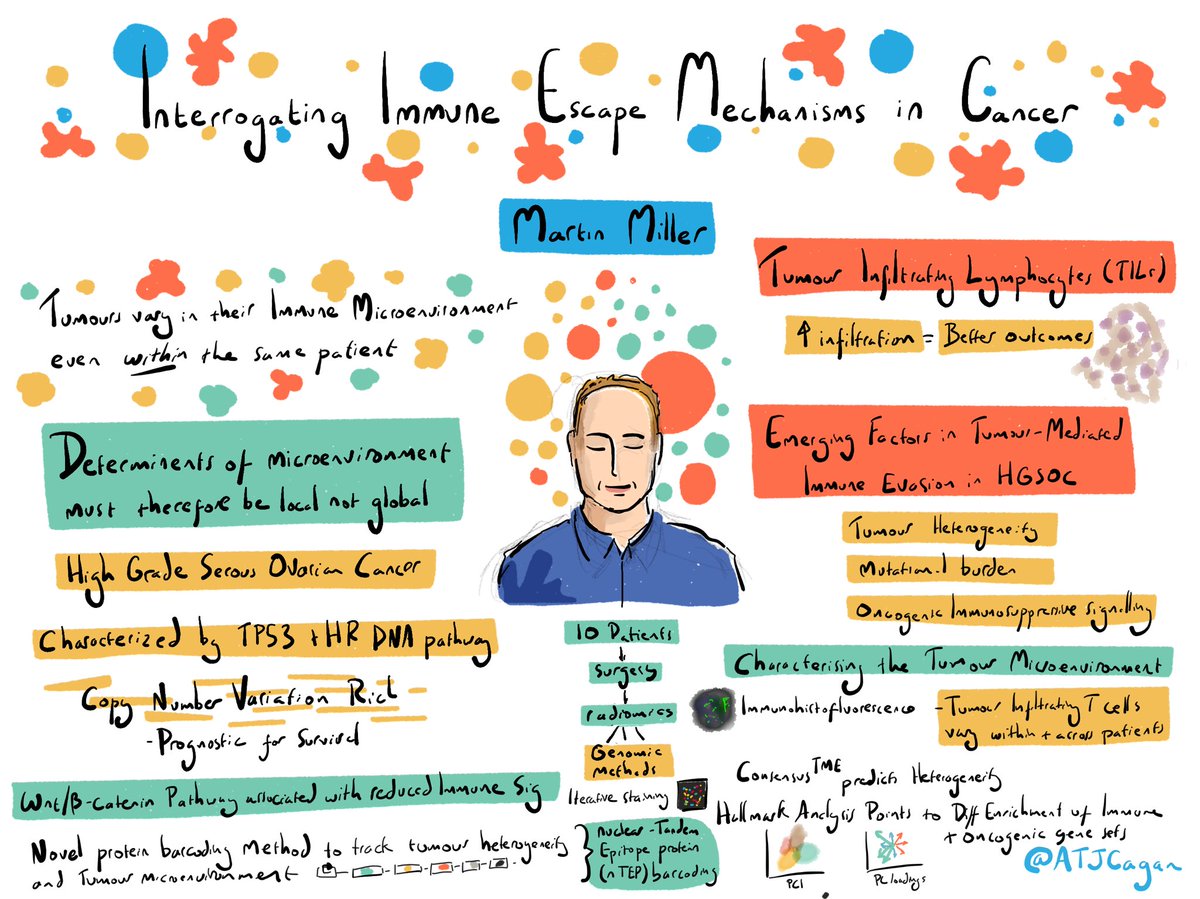 Interrogating Immune Escape Mechanisms in Cancer
Martin Miller
Tumours vary in their Immune Microenvironment
even within the same patient
Determinents of microenvironment
must therefore be local not global
High Grade Serous Ovarian Cancer
Characterized by TP53 + HR DNA pathway
Copy Number Variation Rich
- Prognostic for Survival
Wnt/β-catenin Pathway associated with reduced Immune Sig
Novel protein barcoding Method to track tumour heterogeneity
and Tumour microenvironment
10 Patients
Surgery
radiomics
Genomic
Methods
Iterative staining
nuclear-Tandem
Epitope protein
(nTEP) barcoding
Tumour Infiltrating Lymphocytes (TILs)
↑ infiltration = Better outcomes
Emerging Factors in Tumour-Mediated
Immune Evasion in HGSOC
Tumour Heterogeneity
Mutational burden
Oncogenic Immunosuppressive signalling
Characterising the Tumour Microenvironment
Immunohistofluorescence
- Tumour Infiltrating T cells
vary within + across patients
Consensus TME predicts Heterogeneity
Hallmark Analysis Points to Diff Enrichment of Immune
+ oncogenic gene sets
PC1
PC loadings
@ATJCagan